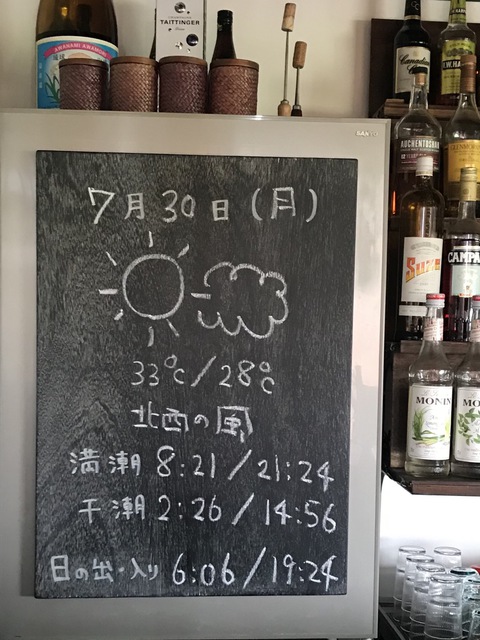 TAITTINGER
SANYO
7月30日(月)
33℃/28℃
北西の風
満潮 8:21/21:24
干潮 2:26/14:56
日の出・入り 6:06/19:24
AUCHENTOSHAN
Suze
CAMPA
MONIN
MONI